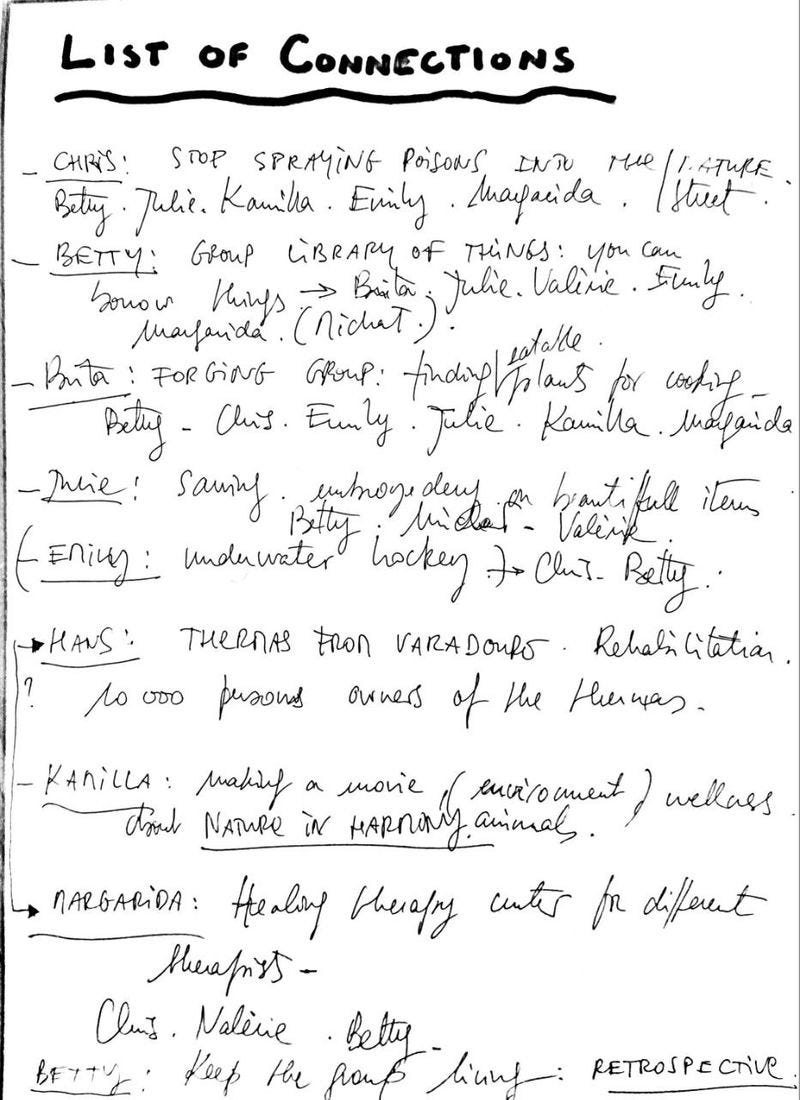 LIST OF CONNECTIONS
- CHRIS: STOP SPRAYING POISONS INTO THE / NATURE.
Betty. Julie. Kamilla. Emily. Margarida. / Street.
- BETTY: GROUP LIBRARY OF THINGS: you can
borrow things → Brita. Julie. Valérie. Emily.
Margarida. (Michat.).
eatable.
- Brita: FORGING GROUP: finding / plants for cooking -
Betty - Chris. Emily. Julie. Kamilla. Margarida
- Julie: on beautifull items
Betty. - Valérie.
(- EMILY: underwater hockey.) → Chris - Betty.
→ HANS: THERMAS FROM VARADOURO. Rehabilitation.
? 10 000 persons owners of the thermas.
- KAMILLA: making a movie (environment) wellness.
about NATURE IN HARMONY. animals.
→ MARGARIDA: Healing therapy center for different
therapists -
Chris. Valérie. Betty -
BETTY: Keep the group living: RETROSPECTIVE.